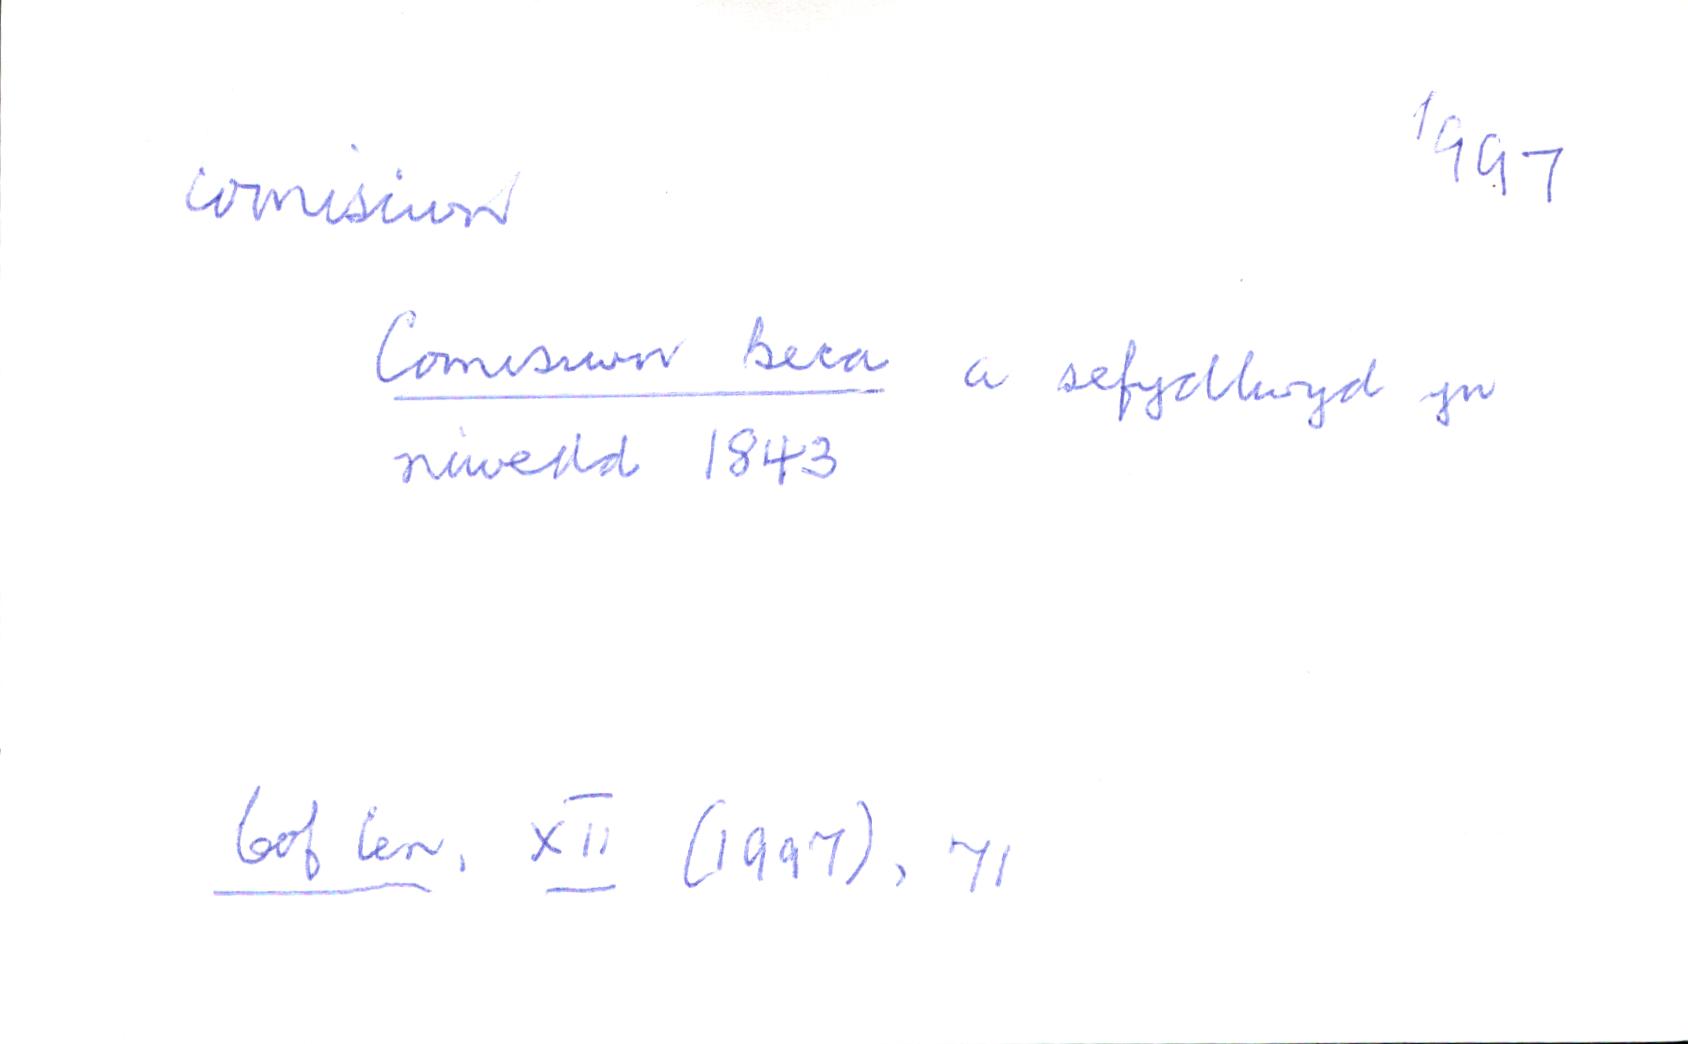 1997
comisiwn
Comisiwn beca a sefydlwyd yn
niwedd 1843
Cof Cen, XII (1997), 71